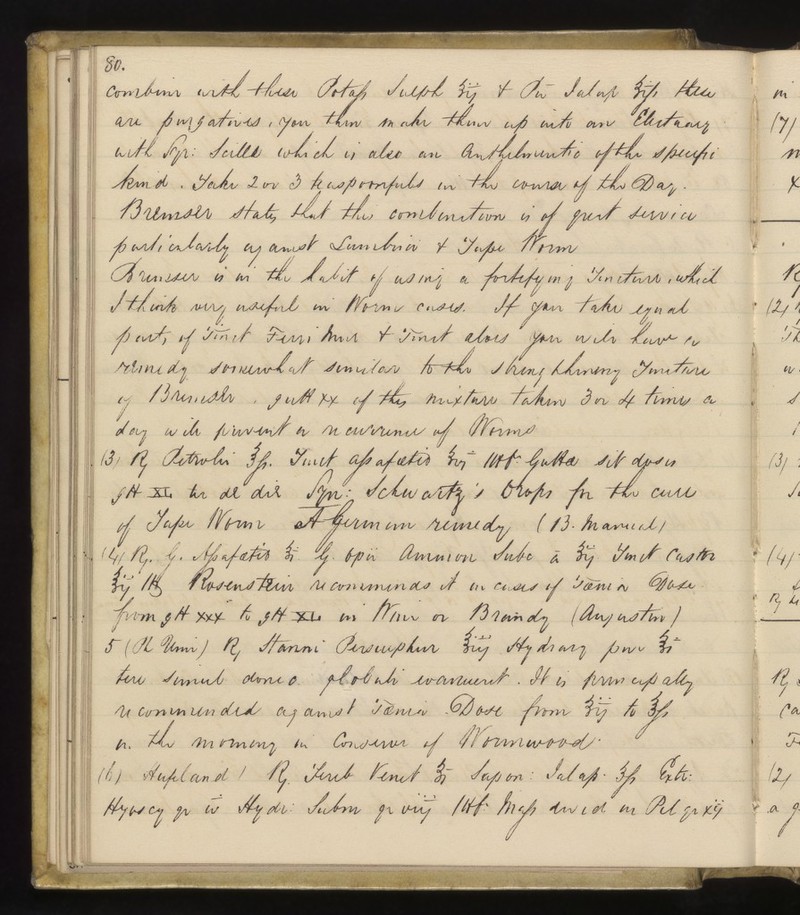 80.
combine with these Potass Sulph ʒij & Pu Jalap ʒifs these
are purgatives, you then make them up into an Electuary
with Syr: Scilla which is also an Anthelmintic of the specific
kind. Take 2 or 3 teaspoonfuls in the course of the Day.
Bremser states that this combination is of great service
particularly against Lumbrici & Tape Worm
Bremser is in the habit of using a fortifying Tincture, which
I think very useful in Worm cases. If you take equal
parts of Tinct Ferri Mur & Tinct aloes you will have a
remedy somewhat similar to the strengthening Tincture
of Bremser. gutt xx of this mixture taken 3 or 4 times a
day will prevent a recurrence of Worms
(3) ℞ Petrolei ℥fs. Tinct assafœtid Mft Guttæ sit dosis
gtt XL ter de die Syn: Schwartz's Drops for the cure
of Tape Worm A German remedy (B. Manual)
(4) ℞. G. Assafœtid G. opii Ammon Subc ā ʒij Tinct Castor
ʒij M Rosenstein recommends it in cases of Tænia Dose
from gtt xxx to gtt XL in Wine or Brandy (Augustin)
5 ℞ Stanni Hydrarg pur
tere simul donec globuli evanuerit. It is principally
recommended against Tænia. Dose from ʒij to ℥fs
in the morning in Conserve of Wormwood.
(6) Hufeland! ℞. Tereb Venet Sapon: Jalap. ʒfs Extr:
Hyoscy gr iv Hydr: Subm gr viij Mft Mass divid in Pil gr xij
in
(7)
℞
(2)
(3)
(4)
℞
℞
(2)
a